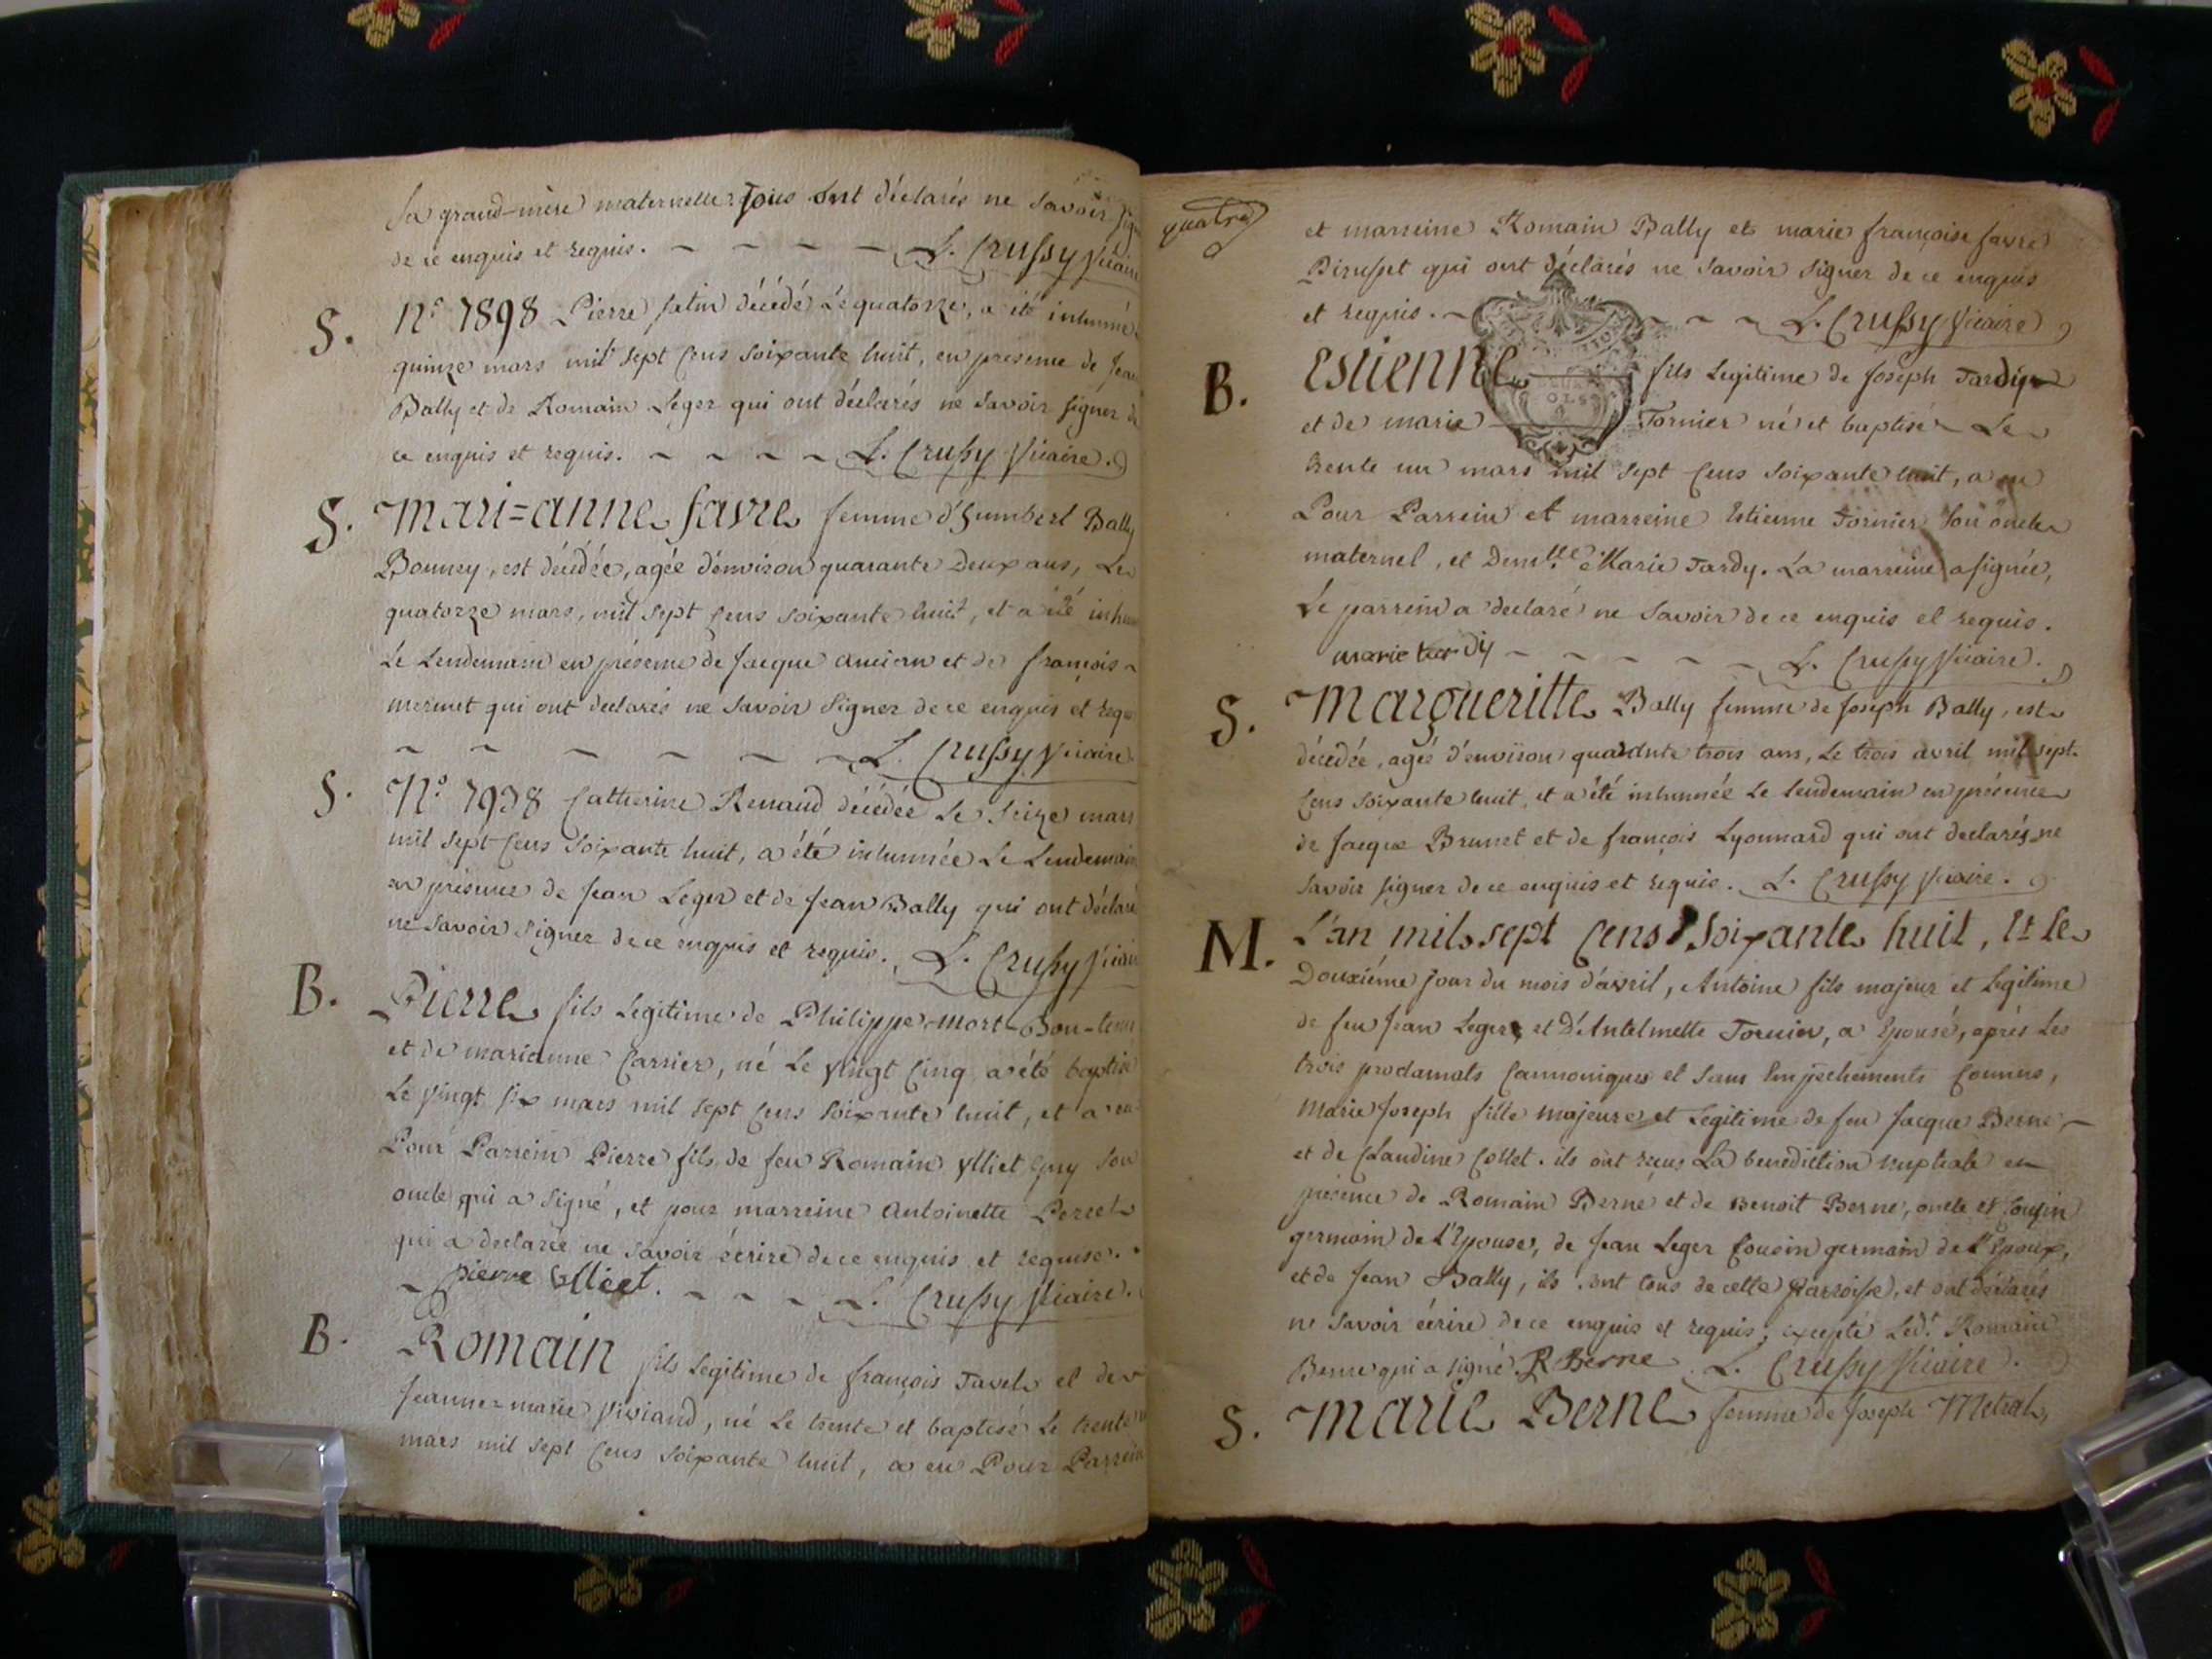 Sa grand-mere maternelle. Tous ont déclarés ne Savoir sign
de ce enquis et requis. L. Crussy Vicaire
S. N.º 7898 Pierre fatin décédé Le quatorze, a été inhumé
quinze mars mil sept Cens Soixante huit, en presence de Jean
Bally et de Romain Leger qui ont déclarés ne Savoir signer de
ce enquis et requis. L. Crussy Vicaire.
S. Mari=anne favre femme d'humbert Bally
Bonney, est décédée, agée d'environ quarante Deux ans, Le
quatorze mars, mil Sept Cens Soixante huit, et a été inhu
Le Lendemain en présence de Jacque ancian et de françois
mermet qui ont declarés ne Savoir Signer de ce enquis et requ
L. Crussy Vicaire
S. N.º 7938 Catherine Renaud décédée Le Seize mars
mil sept Cens Soixante huit, a été inhumée Le Lendemain
en présence de Jean Leger et de Jean Bally qui ont déclaré
ne Savoir Signer de ce enquis et requis. L. Crussy Vicair
B. Pierre fils Legitime de Philippe Mort-Bon-tem
et de marianne Carrier, né Le Vingt Cinq a été baptisé
Le Vingt Six mars mil Sept Cens Soixante huit, et a eu
Pour Parrein Pierre fils de feu Romain Ulliet Guy Son
oncle qui a Signé, et pour marreine Antoinette Percet
qui a declarée ne Savoir écrire de ce enquis et requise.
pierre Ulliet. L. Crussy Vicaire.
B. Romain fils Legitime de françois Tavel et de
Jeanne-marie Viviand, né Le trente et baptisé Le trente
mars mil sept Cens Soixante huit, a eu Pour Parrein
quatre
et marreine Romain Bally et marie françoise favre
Birusset qui ont déclarés ne Savoir Signer de ce enquis
et requis. L. Crussy Vicaire
B. Estienne fils Legitime de Joseph Tardy
et de marie Tornier né et baptisé Le
trente un mars mil Sept Cens Soixante huit, a eu
Pour Parrein et marreine Estienne Tornier Son oncle
maternel, et Demlle Marie Tardy. La marreine a signée,
Le parrein a declaré ne Savoir de ce enquis et requis.
marie tardy L. Crussy Vicaire.
S. Margueritte Bally femme de Joseph Bally, est
décédée, agée d'environ quarante trois ans, Le trois avril mil sept
Cens Soixante huit, et a été inhumée Le lendemain en présence
de Jacque Brunet et de françois Lyonnard qui ont declarés ne
Savoir signer de ce enquis et requis. L. Crussy Vicaire.
M. L'an mil sept Cens Soixante huit, Et Le
Douxiéme jour du mois d'avril, Antoine fils majeur et Legitime
de feu Jean Leger et D'Antelmette Tornier, a Epousé, aprés Les
trois proclamats Cannoniques et Sans Empéchements Connus,
Marie Joseph fille majeure et Legitime de feu Jacque Berne
et de Claudine Collet. ils ont reçus La benediction nuptiale en
présence de Romain Berne et de Benoit Berne, oncle et Cousin
germain de L'Epouse, de Jean Leger Cousin germain de L'Epoux,
et de Jean Bally, ils sont tous de cette Parroisse, et ont déclarés
ne Savoir écrire de ce enquis et requis; excepté Led.t Romain
Berne qui a signé. R Berne L. Crussy Vicaire.
S. Marie Berne femme de Joseph Metral,